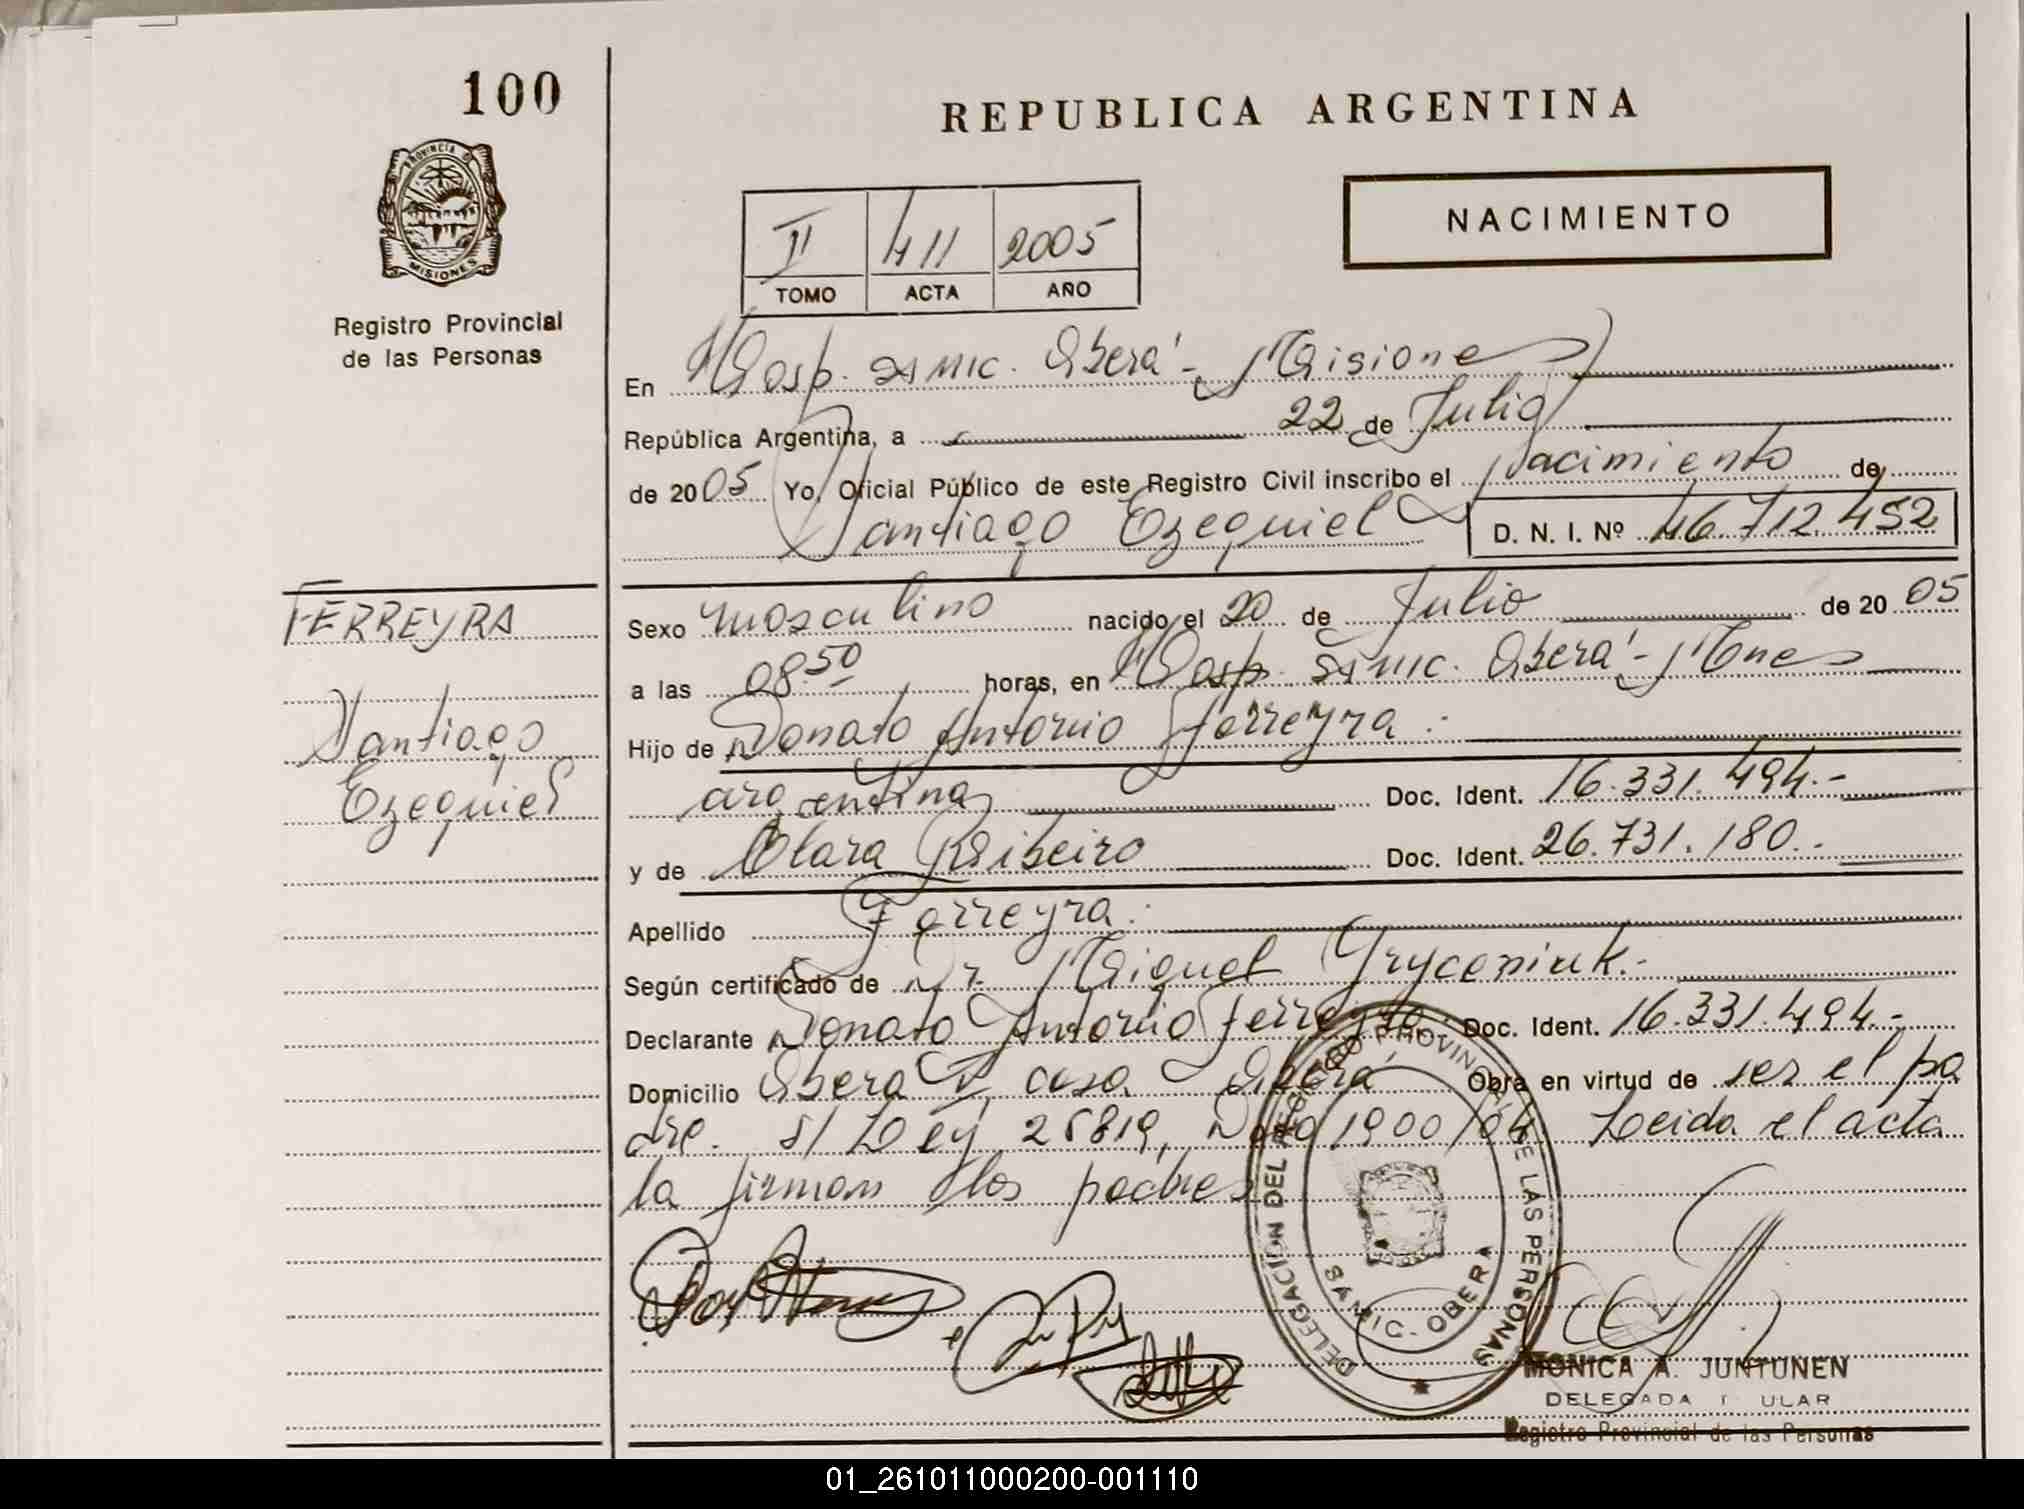 100
REPUBLICA ARGENTINA
PROVINCIA D
MISIONES
Registro Provincial
de las Personas
II 411 2005
TOMO ACTA AÑO
NACIMIENTO
En Hosp. SAMIC. Oberá - Misiones
República Argentina, a 22 de Julio
de 2005 Yo, Oficial Público de este Registro Civil inscribo el Nacimiento de
Santiago Ezequiel D. N. I. Nº 46.712.452
FERREYRA
Santiago
Ezequiel
Sexo masculino nacido el 20 de Julio de 2005
a las 08.50 horas, en Hosp. SAMIC. Oberá - Mnes
Hijo de Donato Antonio Ferreyra.
argentina Doc. Ident. 16.331.494.-
y de Clara Ribeiro Doc. Ident. 26.731.180.-
Apellido Ferreyra.
Según certificado de Dr. Miguel Gryceniuk.-
Declarante Donato Antonio Ferreyra Doc. Ident. 16.331.494.-
Domicilio Oberá casa Oberá Obra en virtud de ser el pa
dre. S/ Ley 25819, Dcto 1900/04 Leida el acta
la firman los padres
DELEGACION DEL REGISTRO PROVINCIAL DE LAS PERSONAS
SAMIC - OBERA
MONICA A. JUNTUNEN
DELEGADA T ULAR
Registro Provincial de las Personas
01_261011000200-001110